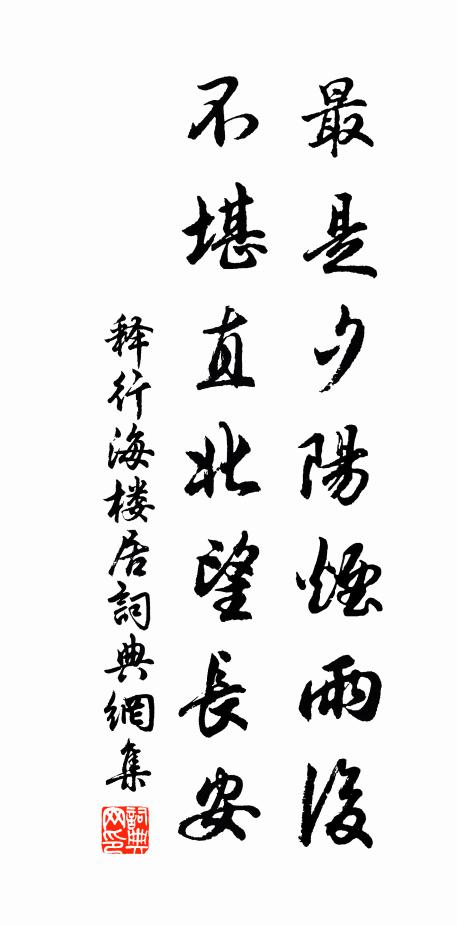 最是夕陽煙雨後
不堪直北望長安
释行海楼居詞典網集
詞典網印